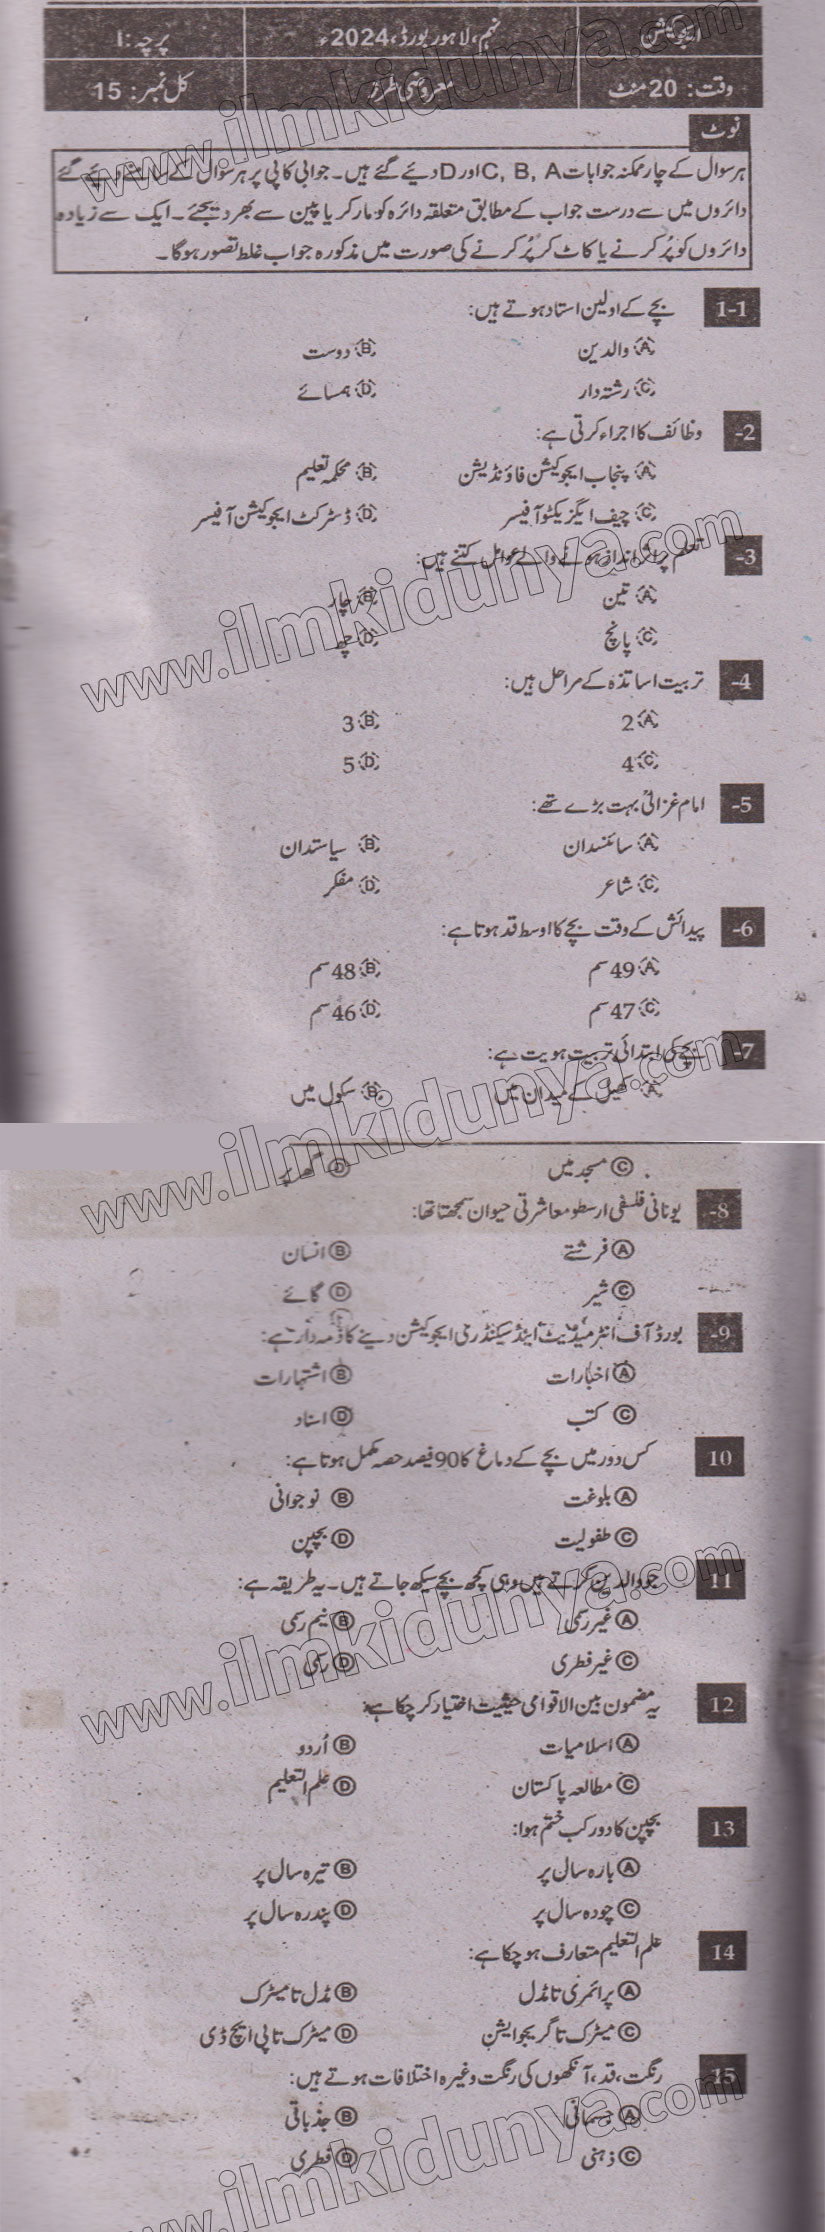 ایجوکیشن نہم، لاہور بورڈ، 2024ء پرچہ: I
وقت: 20 منٹ معروضی طرز کل نمبر: 15
نوٹ
ہر سوال کے چار ممکنہ جوابات C, B, A اور D دیئے گئے ہیں۔ جوابی کاپی پر ہر سوال کے سامنے دیئے گئے
دائروں میں سے درست جواب کے مطابق متعلقہ دائرہ کو مارکر یا پین سے بھر دیجئے۔ ایک سے زیادہ
دائروں کو پُر کرنے یا کاٹ کر پُر کرنے کی صورت میں مذکورہ جواب غلط تصور ہوگا۔
1-1 بچے کے اولین استاد ہوتے ہیں:
(A) والدین (B) دوست
(C) رشتہ دار (D) ہمسائے
2- وظائف کا اجراء کرتی ہے:
(A) پنجاب ایجوکیشن فاؤنڈیشن (B) محکمہ تعلیم
(C) چیف ایگزیکٹو آفیسر (D) ڈسٹرکٹ ایجوکیشن آفیسر
3- تعلم پر اثر انداز ہونے والے عوامل کتنے ہیں:
(A) تین (B) چار
(C) پانچ (D) چھ
4- تربیت اساتذہ کے مراحل ہیں:
(A) 2 (B) 3
(C) 4 (D) 5
5- امام غزالیؒ بہت بڑے تھے:
(A) سائنسدان (B) سیاستدان
(C) شاعر (D) مفکر
6- پیدائش کے وقت بچے کا اوسط قد ہوتا ہے:
(A) 49 سم (B) 48 سم
(C) 47 سم (D) 46 سم
7- بچے کی ابتدائی تربیت ہویت ہے:
(A) کھیل کے میدان میں (B) سکول میں
(C) مسجد میں (D) گھر پر
8- یونانی فلسفی ارسطو معاشرتی حیوان سمجھتا تھا:
(A) فرشتے (B) انسان
(C) شیر (D) گائے
9- بورڈ آف انٹرمیڈیٹ اینڈ سیکنڈری ایجوکیشن دینے کا ذمہ دار ہے:
(A) اخبارات (B) اشتہارات
(C) کتب (D) اسناد
10 کس دور میں بچے کے دماغ کا 90 فیصد حصہ مکمل ہوتا ہے:
(A) بلوغت (B) نوجوانی
(C) طفولیت (D) بچپن
11 جو والدین کرتے ہیں وہی کچھ بچے سیکھ جاتے ہیں۔ یہ طریقہ ہے:
(A) غیر رسمی (B) نیم رسمی
(C) غیر فطری (D) رسمی
12 یہ مضمون بین الاقوامی حیثیت اختیار کر چکا ہے:
(A) اسلامیات (B) اُردو
(C) مطالعہ پاکستان (D) علم التعلیم
13 بچپن کا دور کب ختم ہوا:
(A) بارہ سال پر (B) تیرہ سال پر
(C) چودہ سال پر (D) پندرہ سال پر
14 علم التعلیم متعارف ہو چکا ہے:
(A) پرائمری تا مڈل (B) مڈل تا میٹرک
(C) میٹرک تا گریجوایشن (D) میٹرک تا پی ایچ ڈی
15 رنگت، قد، آنکھوں کی رنگت وغیرہ اختلافات ہوتے ہیں:
(A) جسمانی (B) جذباتی
(C) ذہنی (D) فطری
www.ilmkidunya.com
www.ilmkidunya.com
www.ilmkidunya.com
www.ilmkidunya.com
www.ilmkidunya.com